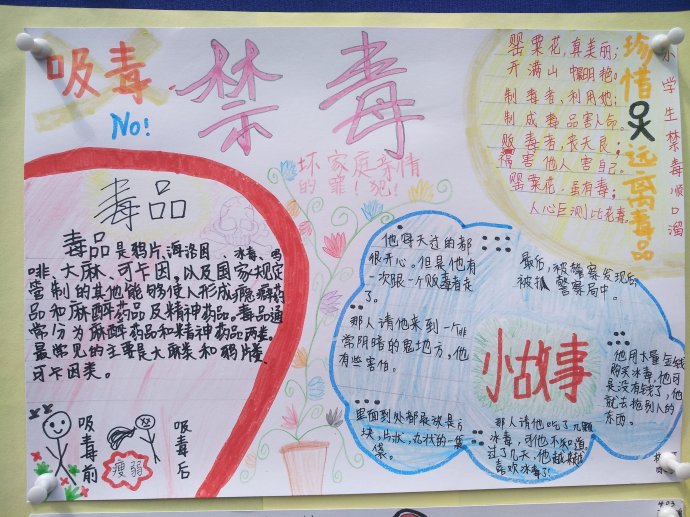 吸毒
No!
禁毒
坏家庭亲情
的罪!犯!
罂粟花,真美丽;
开满山
制毒者,利用她;
制成毒品害人命。
贩毒者,丧天良;
祸害他人害自己。
罂粟花,虽有毒;
人心叵测比花毒。
珍惜
远离毒品
小学生禁毒顺口溜
毒品
毒品是鸦片、海洛因、冰毒、吗
啡、大麻、可卡因,以及国家规定
管制的其他能够使人形成瘾癖药
品和麻醉药品及精神药品。毒品通
常分为麻醉药品和精神药品两类。
最常见的主要是大麻类和鸦片类、
可卡因类。
吸毒前
瘦弱
吸毒后
他每天过的都
很开心。但是他有
一次跟一个贩毒者走
了。
那人请他来到一个非
常阴暗的鬼地方,他
有些害怕。
里面到处都是
块,片状,丸状的一
那人请他吃了几颗
冰毒,可他不知道,
过了几天,他越来越
喜欢冰毒了!
他用大量金钱
购买冰毒,他可
是没有钱了,他
就去抢别人的
东西。
最后,被警察发现后
被抓 警察局中。
小故事
403